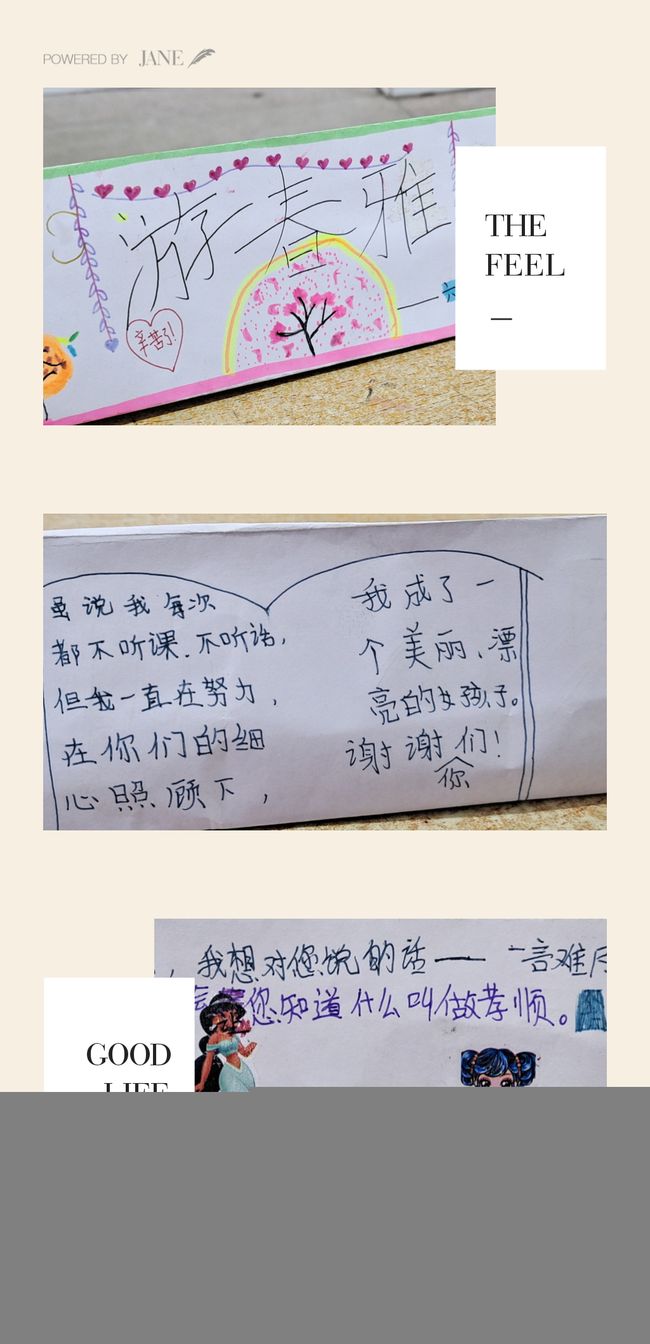 POWERED BY JANE
游春雅
辛苦了!
THE
FEEL
虽说我每次
都不听课.不听话,
但我一直在努力,
在你们的细
心照顾下,
我成了一
个美丽、漂
亮的女孩子。
谢谢你们!
我想对您说的话——一言难尽
您知道什么叫做孝顺。
GOOD
LIFE